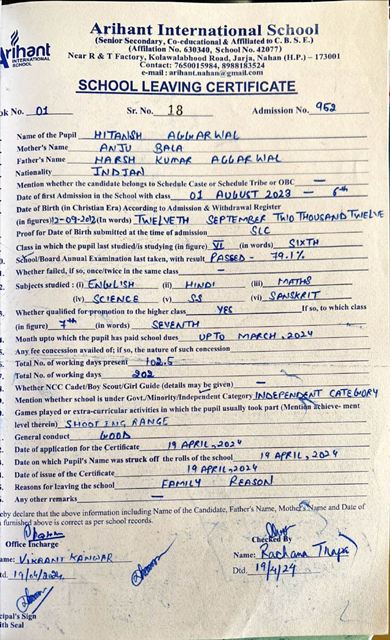 Arihant International School
(Senior Secondary, Co-educational & Affiliated to C. B. S. E.)
(Affilation No. 630340, School No. 42077)
Near R & T Factory, Kolawalabhood Road, Jarja, Nahan (H.P.) – 173001
Contact: 7650015984, 8988183524
e-mail : arihant.nahan@gmail.com
Arihant
INTERNATIONAL
SCHOOL
SCHOOL LEAVING CERTIFICATE
ok No. 01 Sr. No. 18 Admission No. 952
Name of the Pupil HITANSH AGGARWAL
Mother's Name ANJU BALA
Father's Name HARSH KUMAR AGGARWAL
Nationality INDIAN
Mention whether the candidate belongs to Schedule Caste or Schedule Tribe or OBC —
Date of first Admission in the School with class 01 AUGUST 2023 – 6th
Date of Birth (in Christian Era) According to Admission & Withdrawal Register
(in figures) 12-09-2012 (in Words) TWELVETH SEPTEMBER TWO THOUSAND TWELVE
Proof for Date of Birth submitted at the time of admission SLC
Class in which the pupil last studied/is studying (in figure) VI (in words) SIXTH
School/Board Annual Examination last taken, with result PASSED - 79.1%
Whether failed, if so, once/twice in the same class —
Subjects studied : (i) ENGLISH (ii) HINDI (iii) MATHS
(iv) SCIENCE (v) SS (vi) SANSKRIT
Whether qualified for promotion to the higher class YES If so, to which class
(in figure) 7th (in words) SEVENTH
Month upto which the pupil has paid school dues UPTO MARCH, 2024
Any fee concession availed of; if so, the nature of such concession
Total No. of working days present 102.5
Total No. of working days 202
Whether NCC Cadet/Boy Scout/Girl Guide (details may be given) —
Mention whether school is under Govt./Minority/Independent Category INDEPENDENT CATEGORY
Games played or extra-curricular activities in which the pupil usually took part (Mention achieve- ment
level therein) SHOOTING RANGE
General conduct GOOD
Date of application for the Certificate 19 APRIL, 2024
Date on which Pupil's Name was struck off the rolls of the school 19 APRIL, 2024
Date of issue of the Certificate 19 APRIL, 2024
Reasons for leaving the school FAMILY REASON
Any other remarks —
eby declare that the above information including Name of the Candidate, Father's Name, Mother's Name and Date of
furnished above is correct as per school records.
Office Incharge Checked By
ame: VIKRANT KANWAR Name: Rachana Thapa
td. 19/04/2024 Dtd. 19/4/24
cipal's Sign
ith Seal